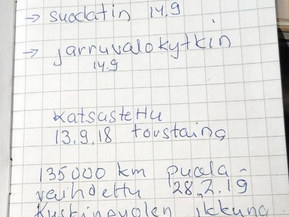 → suodatin 14.9
→ jarruvalokytkin
14.9
katsastettu
13.9.18 torstaina
135000 km puola-
vaihdettu 28.2.19
ikkuna